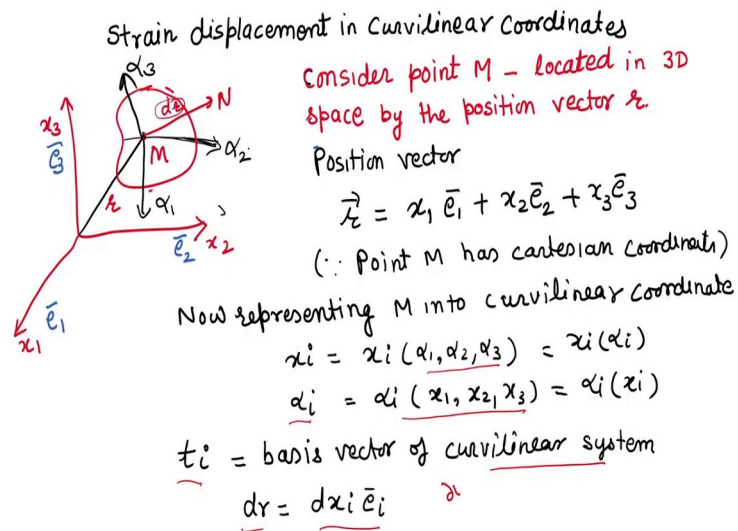 Strain displacement in Curvilinear Coordinates
α3
x3
ē3
N
M
α2
r
α1
ē2 x2
ē1
x1
Consider point M - located in 3D
space by the position vector r.
Position vector
r⃗ = x1 ē1 + x2 ē2 + x3 ē3
(∵ Point M has cartesian coordinates)
Now representing M into curvilinear coordinate
xi = xi (α1, α2, α3) = xi(αi)
αi = αi (x1, x2, x3) = αi(xi)
ti = basis vector of curvilinear system
dr = dxi ēi